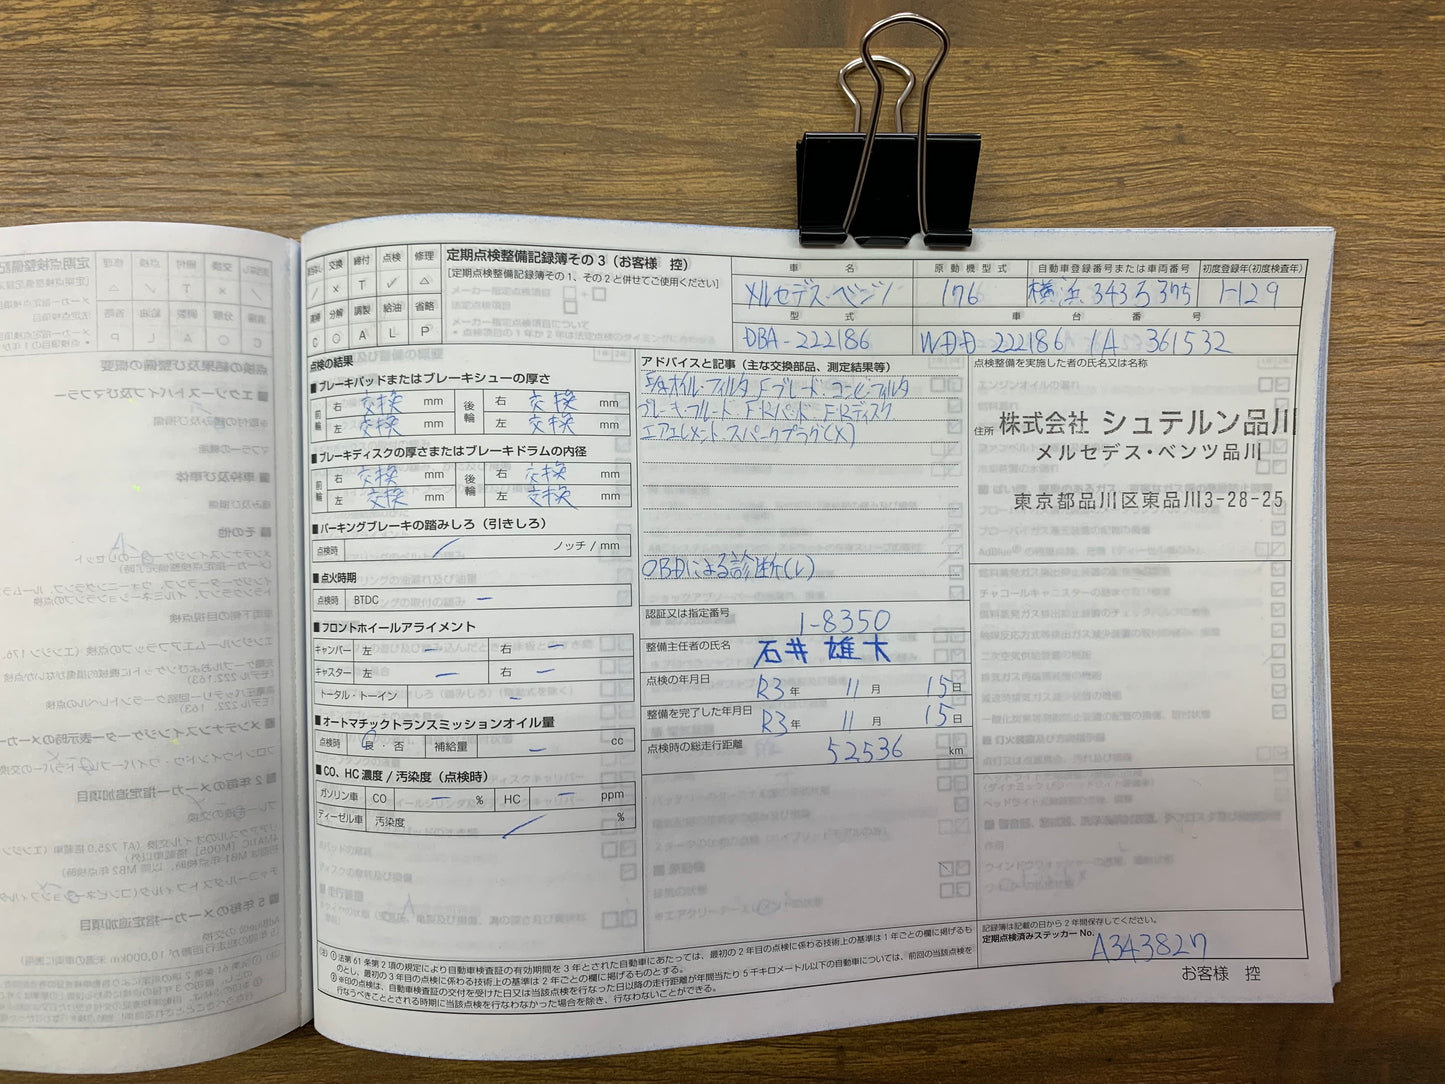 定期点検整備記録簿その3（お客様　控）
[定期点検整備記録簿その1、その2と併せてご使用ください]
交換 締付 点検 修理
／ × T ✓ △
分解 調整 給油 省略
C ○ A L P
車　名 原動機型式 自動車登録番号または車両番号 初度登録年(初度検査年)
メルセデス・ベンツ 176 横浜 343 ろ 375 H29
型　式 車　台　番　号
DBA-222186 WDD 222186 1A 361532
点検の結果
■ブレーキパッドまたはブレーキシューの厚さ
前輪 右 交換 mm 後輪 右 交換 mm
左 交換 mm 左 交換 mm
■ブレーキディスクの厚さまたはブレーキドラムの内径
前輪 右 交換 mm 後輪 右 交換 mm
左 交換 mm 左 交換 mm
■パーキングブレーキの踏みしろ（引きしろ）
点検時 ノッチ / mm
■点火時期
点検時 BTDC －
■フロントホイールアライメント
キャンバー 左 － 右 －
キャスター 左 － 右 －
トータル・トーイン －
■オートマチックトランスミッションオイル量
点検時 良・否 補給量 － cc
■CO、HC濃度 / 汚染度（点検時）
ガソリン車 CO － % HC － ppm
ディーゼル車 汚染度 ／ %
アドバイスと記事（主な交換部品、測定結果等）
E/gオイル・フィルタ Fブレード・コンビ・フィルタ
ブレーキフルード・F・Rパッド・F・Rディスク
エアエレメント・スパークプラグ(×)
OBDによる診断(✓)
認証又は指定番号 1-8350
整備主任者の氏名 石井 雄大
点検の年月日 R3年 11月 15日
整備を完了した年月日 R3年 11月 15日
点検時の総走行距離 52536 km
点検整備を実施した者の氏名又は名称
住所 株式会社 シュテルン品川
メルセデス・ベンツ品川
東京都品川区東品川3-28-25
記録簿は記載の日から2年間保存してください。
定期点検済みステッカーNo. A343827
(注) ①法第61条第2項の規定により自動車検査証の有効期間を3年とされた自動車にあたっては、最初の2年目の点検に係わる技術上の基準は1年ごとの欄に掲げるも
のとし、最初の3年目の点検に係わる技術上の基準は2年ごとの欄に掲げるものとする。
②※印の点検は、自動車検査証の交付を受けた日又は当該点検を行なった日以降の走行距離が年間当たり5千キロメートル以下の自動車については、前回の当該点検を
行なうべきこととされる時期に当該点検を行なわなかった場合を除き、行なわないことができる。
お客様　控